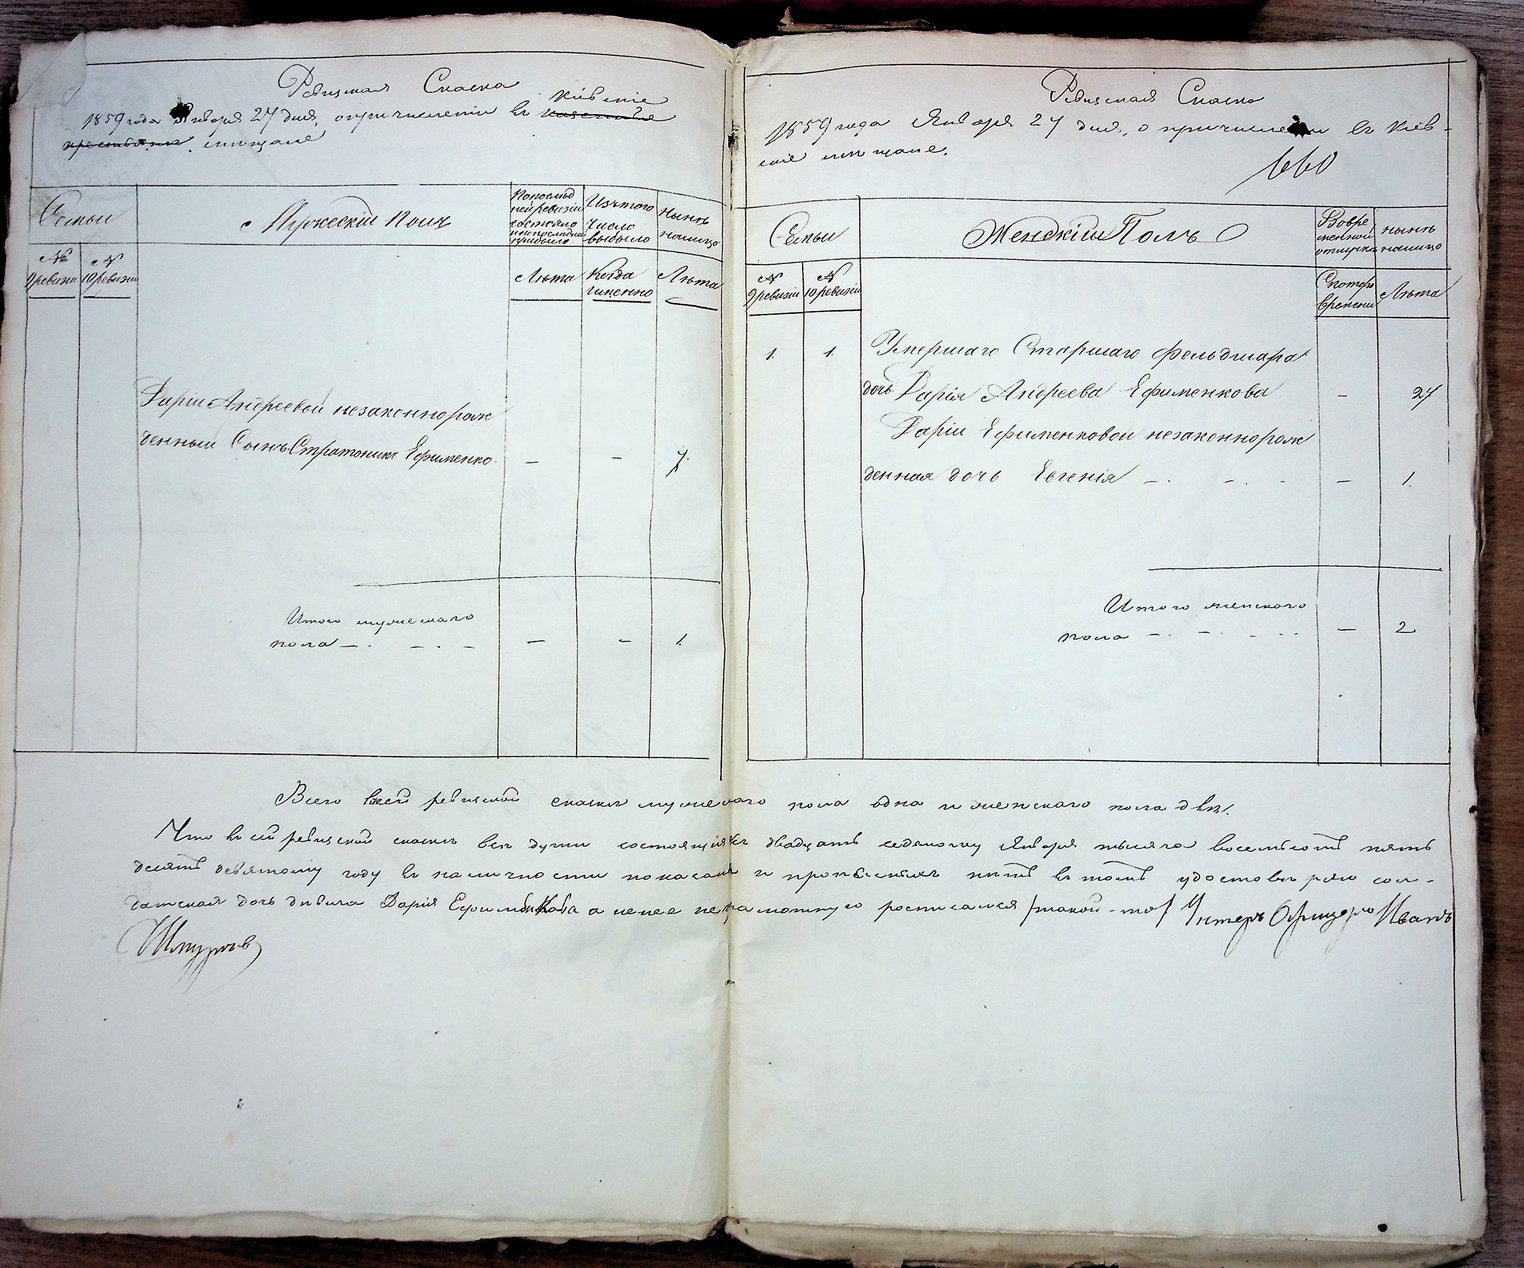 Ревизская Сказка
1859 года Января 27 дня, о причислении въ Кiевскiе
казенные
крестьяне мещане
Семьи
Мужескiй Полъ
По послѣдней ревизiи состояло и послѣ прибыло
Изъ того число выбыло
Нынѣ на лицо
№ 9 ревизiи
№ 10 ревизiи
Лѣта
Когда именно
Лѣта
Дарiи Андреевой незаконнорож
денный Сынъ Стратоникъ Ефименко - - 7.
Итого мужескаго
пола - . - . - - - 1.
Ревизская Сказка
1859 года Января 27 дня, о причислении въ Кiев-
скiе мещане.
660
Семьи
Женскiй Полъ
Во временной отлучкѣ
Нынѣ на лицо
№ 9 ревизiи
№ 10 ревизiи
Съ которого времени
Лѣта
1. 1. Умершаго Старшаго фельдшара
дочь Дарiя Андреева Ефименкова - 27
Дарiи Ефименковой незаконнорож
денная дочь Евгенiя - . - . - - 1.
Итого женского
пола - . - . - . . - 2
Всего в сей ревизской сказкѣ мужескаго пола одна и женскаго пола двѣ.
Что въ сей ревизской сказкѣ все души состоящiя къ двадцать седьмому Января тысяча восемьсотъ пять
десятъ девятому году въ наличности показаны и прописныхъ нѣтъ въ томъ удостовѣряю сол-
датская дочь дѣвица Дарiя Ефименкова а вместо нее неграмотную росписался /такой-то/ Унтеръ Офицеръ Иванъ